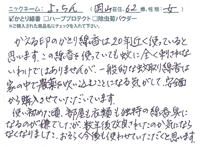 ニックネーム: よっちん (岡山在住、62歳、性別: 女)
かとり線香 □ハーブプロテクト □除虫菊パウダー
かえる印のかとり線香は20年近く使っていると
思います。この線香を使っていても蚊に全く刺されな
いわけではありませんが、一般的な蚊取り線香は
家の中で農薬を吸い込むことになる気がして、
から購入させていただいています。
使い初めた頃、部屋も衣類も独特の線香臭に
なるのが嫌でしたが、数年後改良されたのか気になら
なくなりました。おそらく今後も使わせていただくと思います。